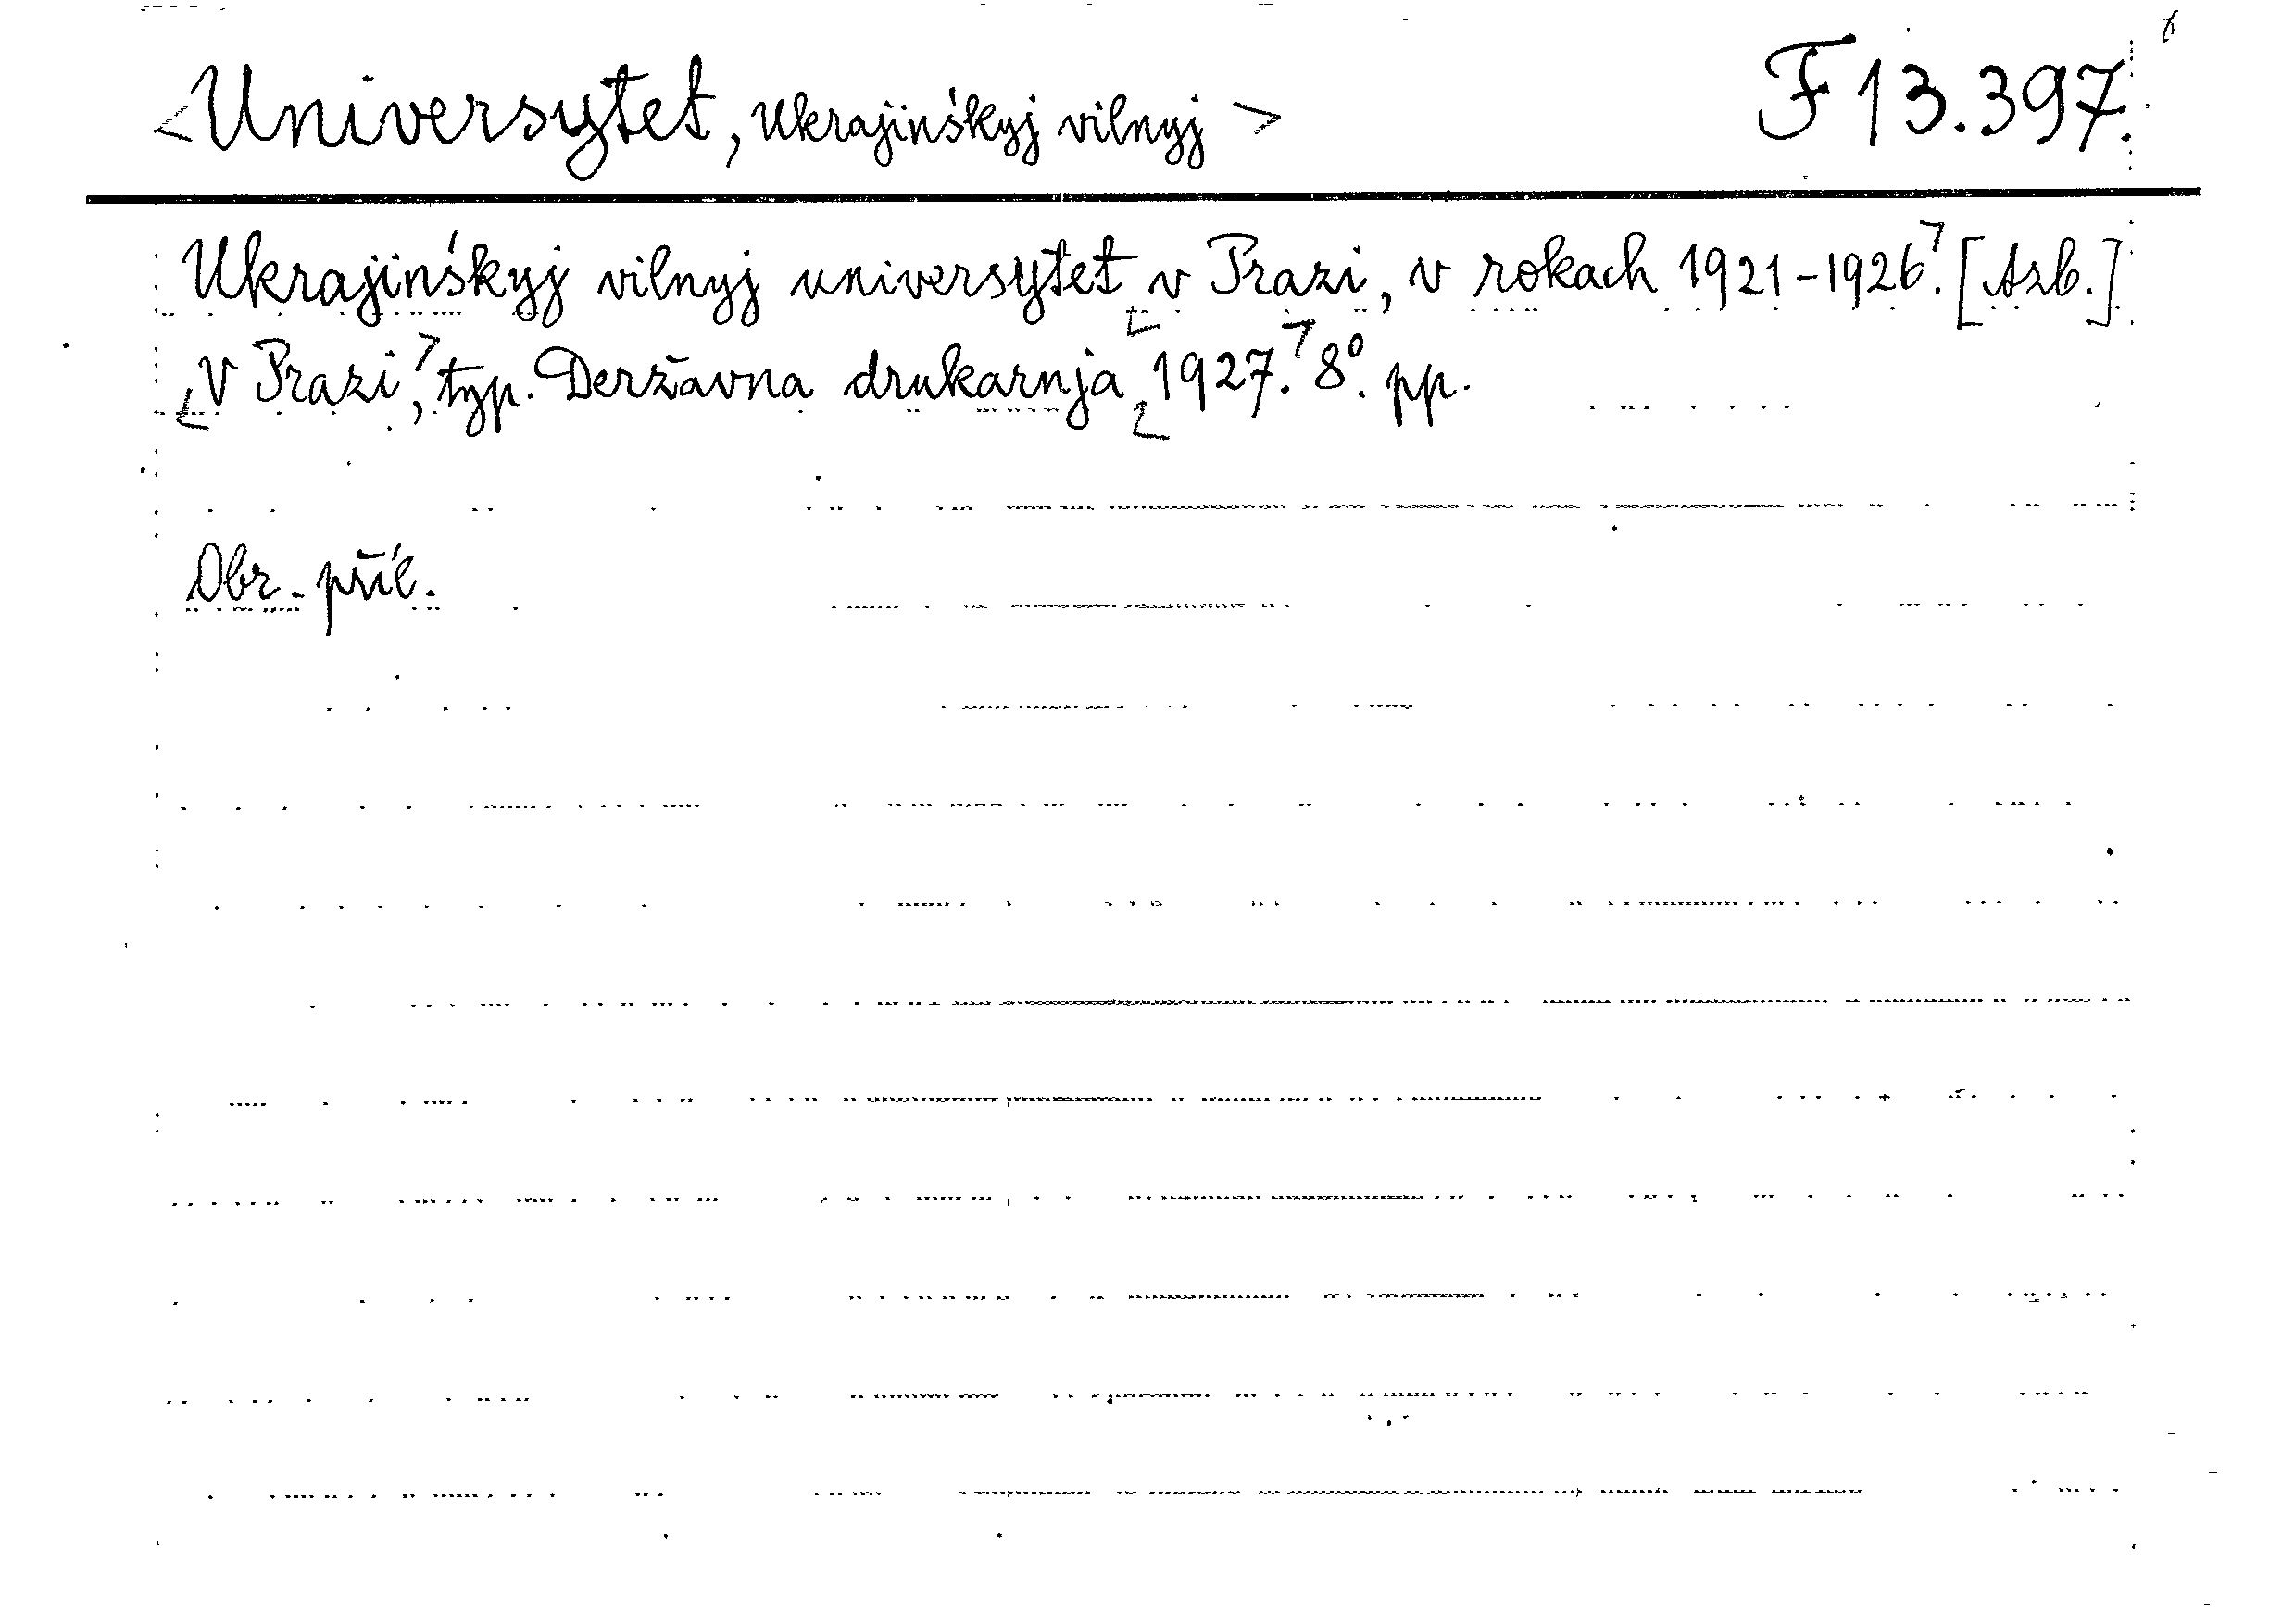 <Universytet, Ukrajinśkyj vilnyj> F 13.397.
Ukrajinśkyj vilnyj universytet v Prazi, v rokach 1921-1926. [Azb.]
V Prazi, typ. Deržavna drukarnja 1927. 8°. pp.
Obr. příl.